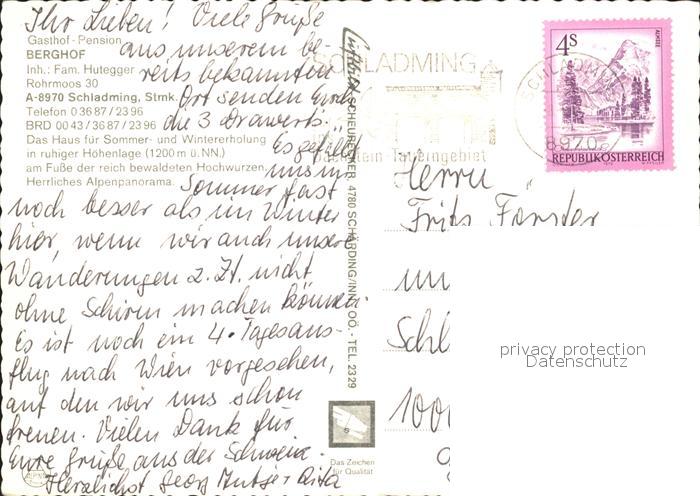 Ihr Lieben! Viele Grüße
Gasthof-Pension
BERGHOF
Inh.: Fam. Hutegger
Rohrmoos 30
A-8970 Schladming, Stmk.
Telefon 0 36 87 / 23 96
BRD 00 43 / 36 87 / 23 96
Das Haus für Sommer- und Wintererholung
in ruhiger Höhenlage (1200 m ü. NN.)
am Fuße der reich bewaldeten Hochwurzen.
Herrliches Alpenpanorama.
aus unserem be-
reits bekannten
Ort senden Euch
die 3
Es gefällt
uns im
Sommer fast
noch besser als im Winter
hier, wenn wir auch unsere
Wanderungen z. Zt. nicht
ohne Schirm machen können.
Es ist noch ein 4-Tagesaus-
flug nach Wien vorgesehen,
auf den wir uns schon
freuen. Vielen Dank für
Eure Grüße aus der Schweiz.
Herzlichst Georg
4780 SCHÄRDING/INN, OÖ. - TEL. 2329
Das Zeichen
für Qualität
SCHLADMING
Dachstein-Tauerngebiet
SCHLADMING
8970
4S
REPUBLIK ÖSTERREICH
Herrn
Fritz Förster
un
Schl
100
privacy protection
Datenschutz